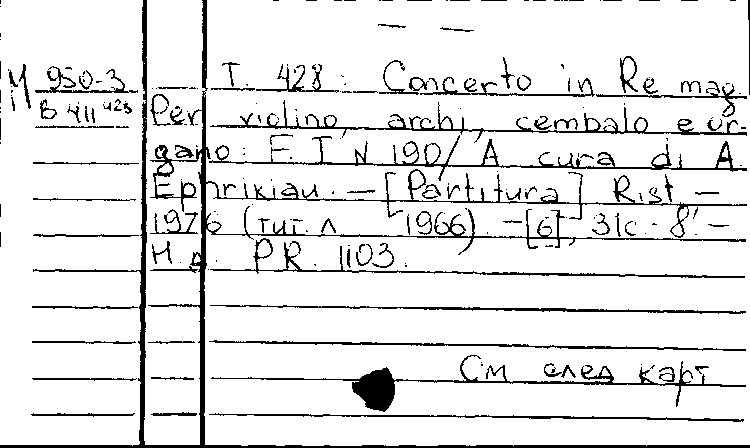 М 950-3
В 411 428
Т. 428: Concerto in Re mag.
Per violino, archi, cembalo e or-
gano: F. I N 190/ A cura di A.
Ephrikiau. — [Partitura] Rist. —
1976 (тит. л. 1966). — [6], 31с. 8°. —
Н. д. PR. 1103.
См след карт